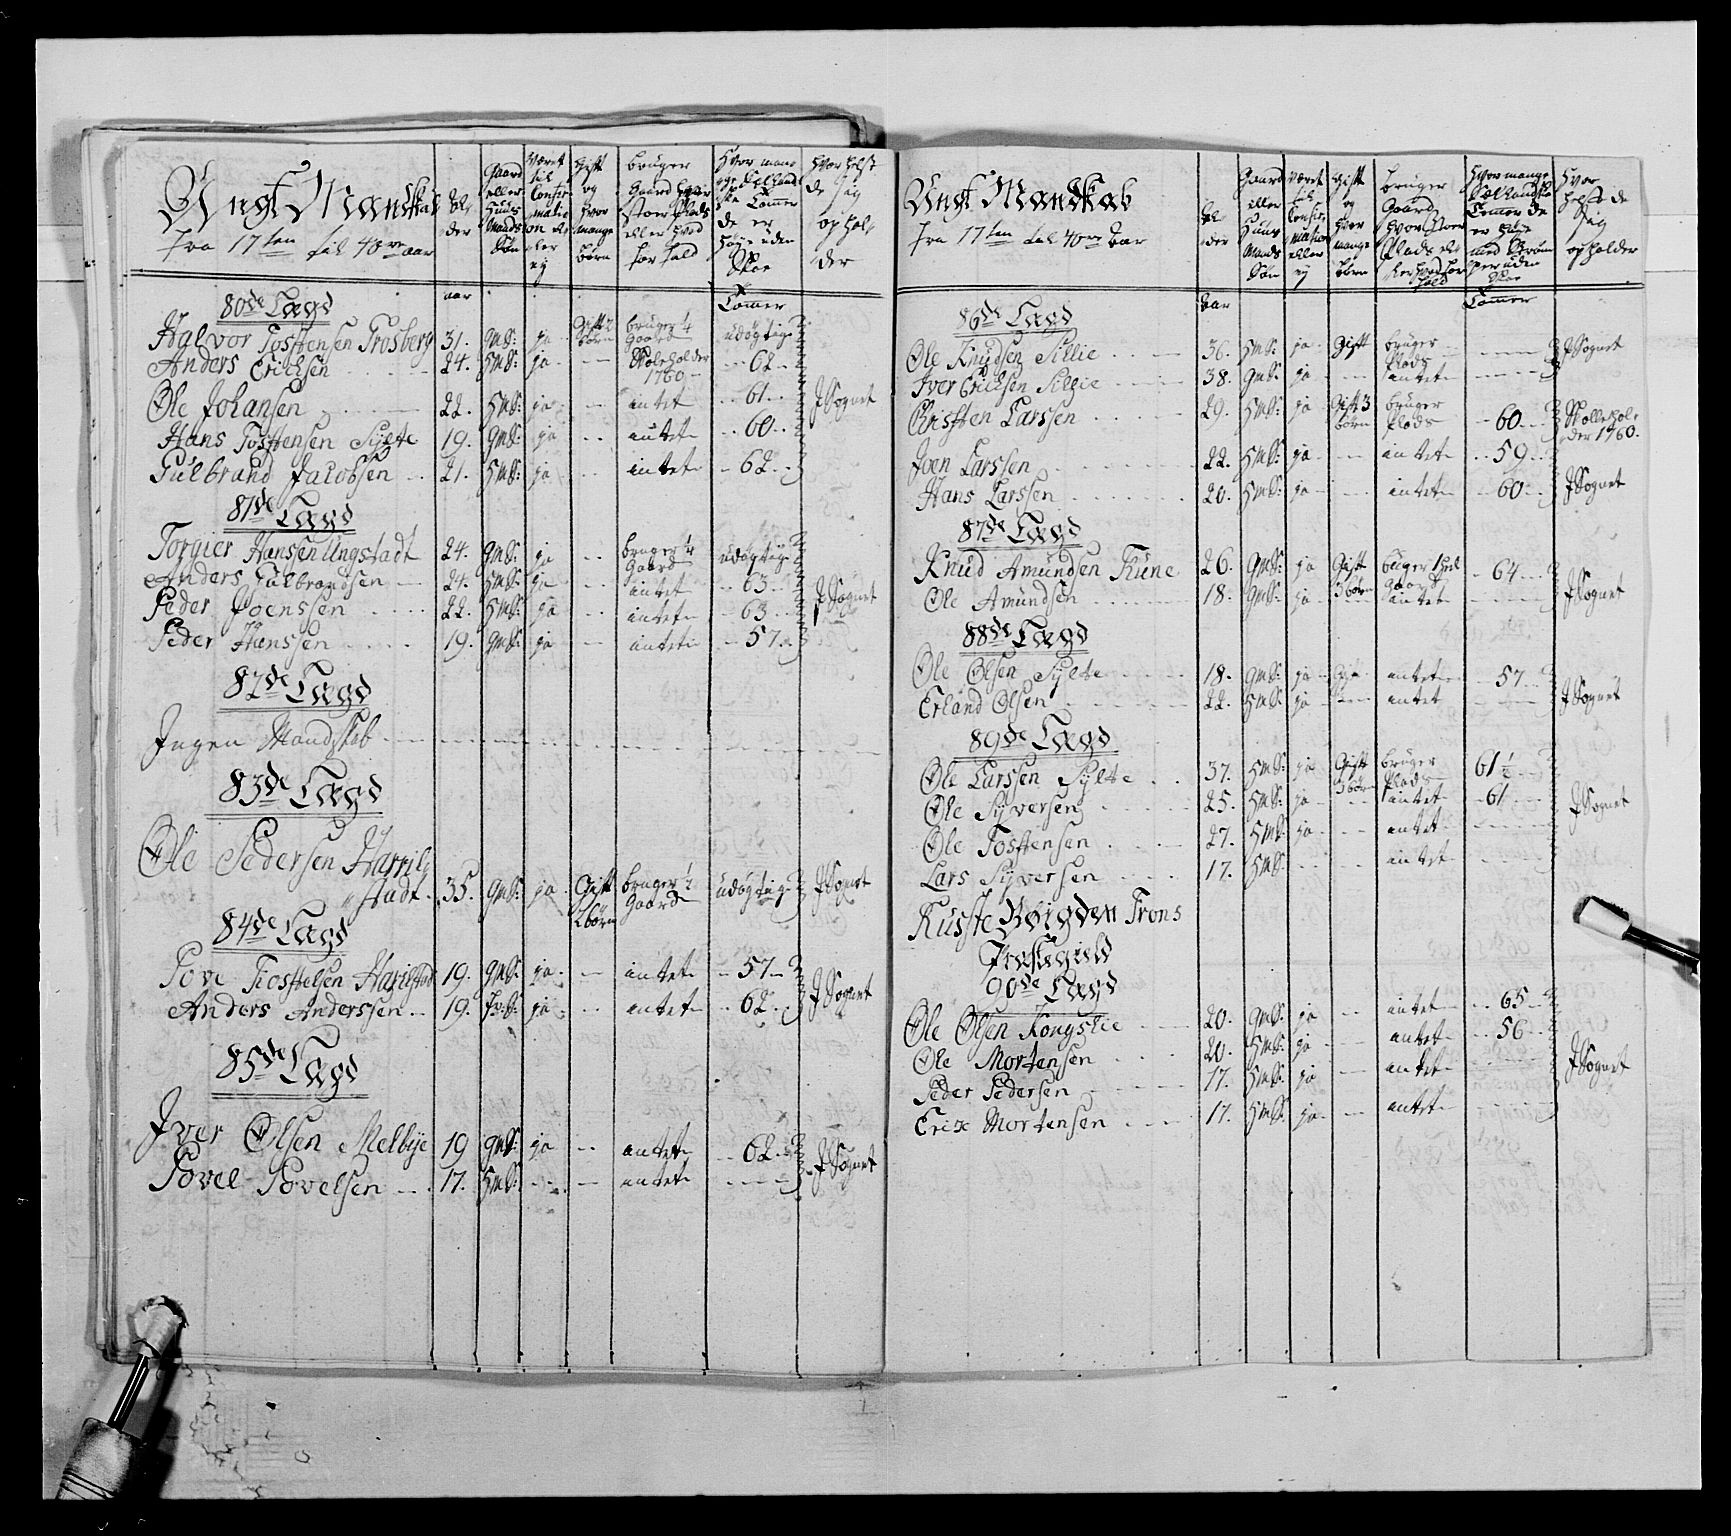 Ungt Mandskab
fra 17ten til 40rve aar
Al,
der
Gaard
eller
Huus
Mands
Søn
Været
til
Confir
matio
on el
ler
ey
Gift
og
hvor
mange
børn
bruger
Gaard hvor
stoer Plads
eller hvad
for hold
Hvor man
ge Sælland
ske Tommer
de er
høye uden
Skoe
Tommer
Hvor helst
de sig
ophol,
der
80de Lægd
aar
Halvor Tostensen Trosberg 31. GMS: ja Gift 2 børn bruger 1/4 Gaard udøgtige
Anders Erichsen 24. HMS: ja - - 1760 - 62 -
Ole Johansen 22. HMS: ja - - intet - 61 - J Sognet
Hans Tostensen Sylte 19. GMS: ja - - intet - 60 -
Gulbrand Jacobsen 21. HMS: ja - - intet - 62 -
81de Lægd
Torgier Hanssen Ungstadt 24. GMS: ja - - bruger 1/4 Gaard udøgtige
Anders Gulbrandsen 24. HMS: ja - - intet - 63 - J Sognet
Peder Joenssen 22. HMS: ja - - intet - 63 -
Peder Hanssen 19. GMS: ja - - intet - 57 -
82de Lægd
Ingen Mandskab
83de Lægd
Ole Pedersen Harril,
stadt 35. GMS: ja Gift 2 børn bruger 1/2 Gaard udøgtige J Sognet
84de Lægd
Tove Tostelsen Harilstad 19. GMS: ja - intet - 57 -
Anders Anderssen 19. ja - - intet - 62 - J Sognet
85de Lægd
Iver Olsen Melbye 19 GMS: ja - - intet - 62 - J Sognet
Povel Povelsen 17. HMS: - - - intet
Ungt Mandskab
fra 17ten til 40rve Aar
Al,
der
Gaard
eller
Huus
Mands
Søn
Været
til
Confir,
mation
eller
ey
Gift
og
hvor
mange
børn
bruger
Gaard
hvor stoer
Plads el
ler hvad for
hold
Hvor mange
Sællandske
Tommer de
er høye
uden
Skoe
Tommer
Hvor
helst de
Sig
opholder
Aar
86de Lægd
Ole Knudsen Sillie 36. HMS: ja Gift bruger Plads J Sognet
Iver Erichsen Sillie 38. GMS: ja - - intet
Christen Larssen 29. HMS: ja Gift 3 børn bruger Plads - 60 - der 1760.
Joen Larssen 22. HMS: ja - - intet - 59 -
Hans Larssen 20. HMS: ja - - intet - 60 - J Sognet
87de Lægd
Knud Amundsen Tune 26. GMS: ja Gift 3 børn bruger Gaard - 64 -
Ole Amundsen 18. GMS: ja intet J Sognet
88de Lægd
Ole Olsen Sylte 18. GMS: ja intet - 57 -
Erland Olsen 22. HMS: ja - - intet J Sognet
89de Lægd
Ole Larssen Sylte 37. HMS: ja Gift 3 børn bruger Plads 61 1/2
Ole Syversen 25. HMS: ja - - intet - 61 J Sognet
Ole Tostensen 27. HMS: ja - - intet
Lars Syversen 17. HMS: - - intet
Ruste Bøigden Frons
Præstegield
90de Lægd
Ole Olsen Kongslie 20. GMS: ja - - intet - 65 -
Ole Mortensen 20. HMS: ja - - intet - 56
Peder Pedersen 17. HMS: ja - - intet J Sognet
Erik Mortensen 17. HMS: ja - - intet